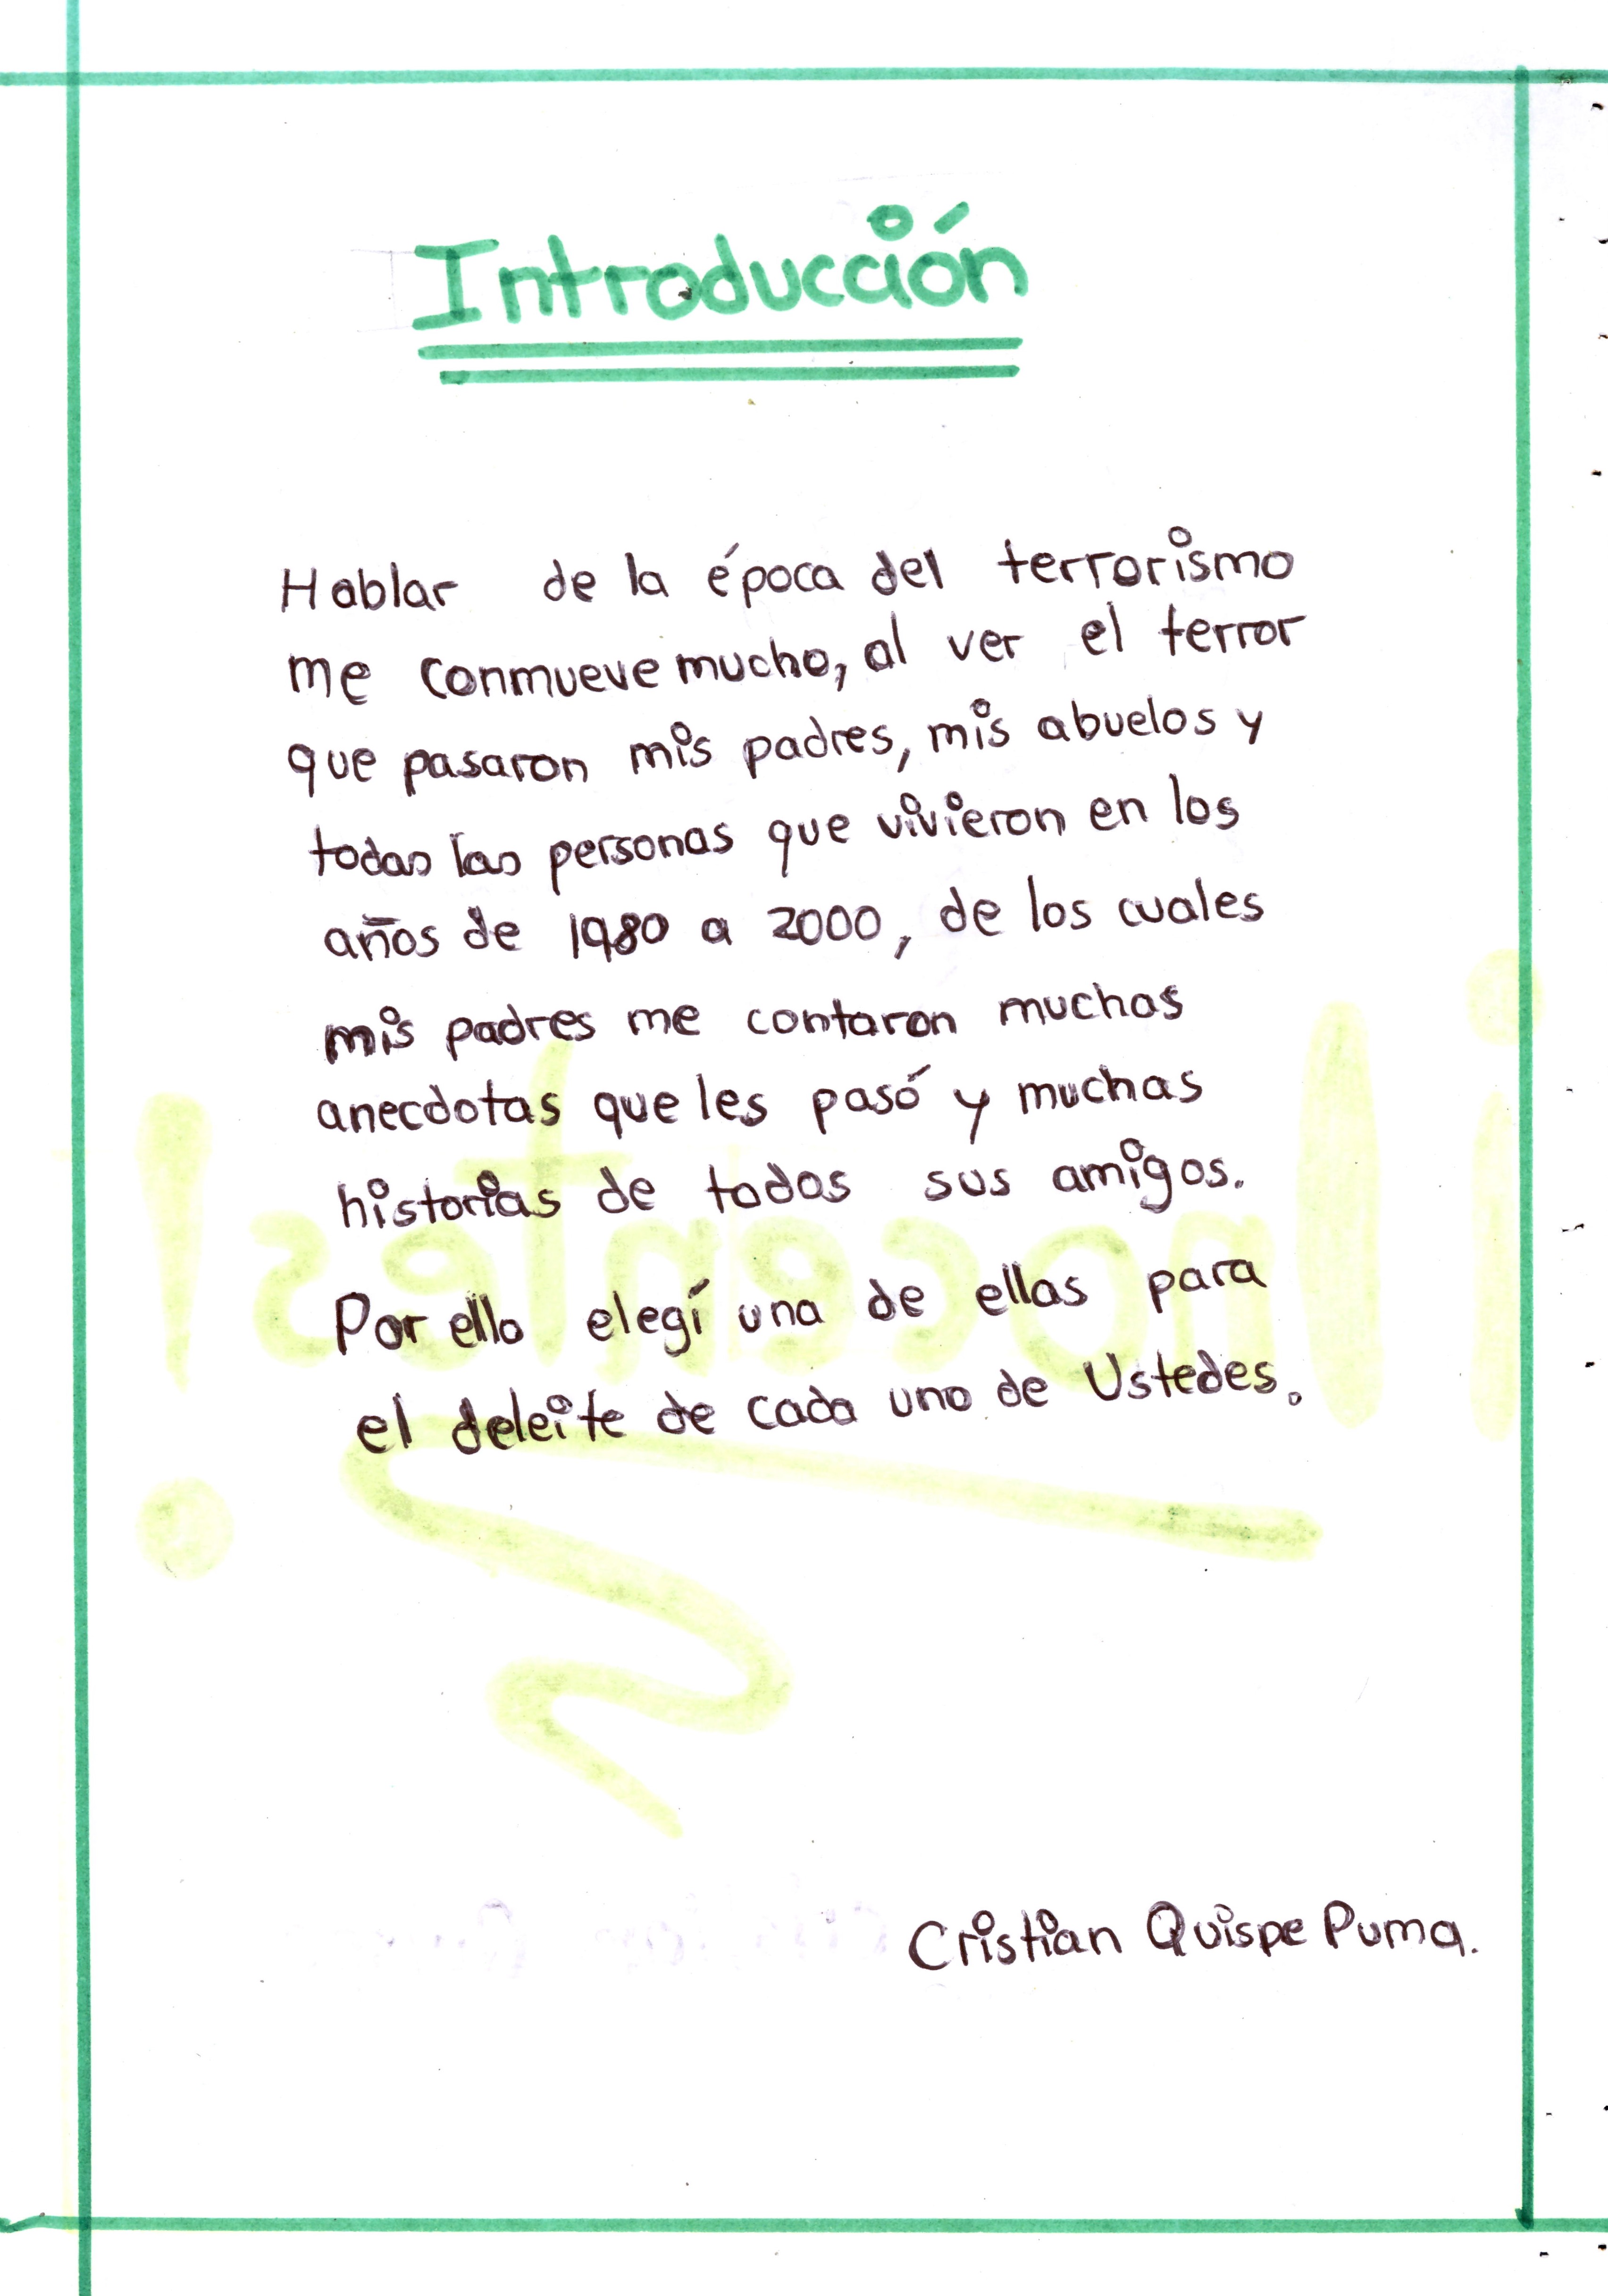 Introducción
Hablar de la época del terrorismo
me conmueve mucho, al ver el terror
que pasaron mis padres, mis abuelos y
todas las personas que vivieron en los
años de 1980 a 2000, de los cuales
mis padres me contaron muchas
anecdotas que les pasó y muchas
historias de todos sus amigos.
Por ello elegí una de ellas para
el deleite de cada uno de Ustedes.
¡Inocentes!
Cristian Quispe Puma.